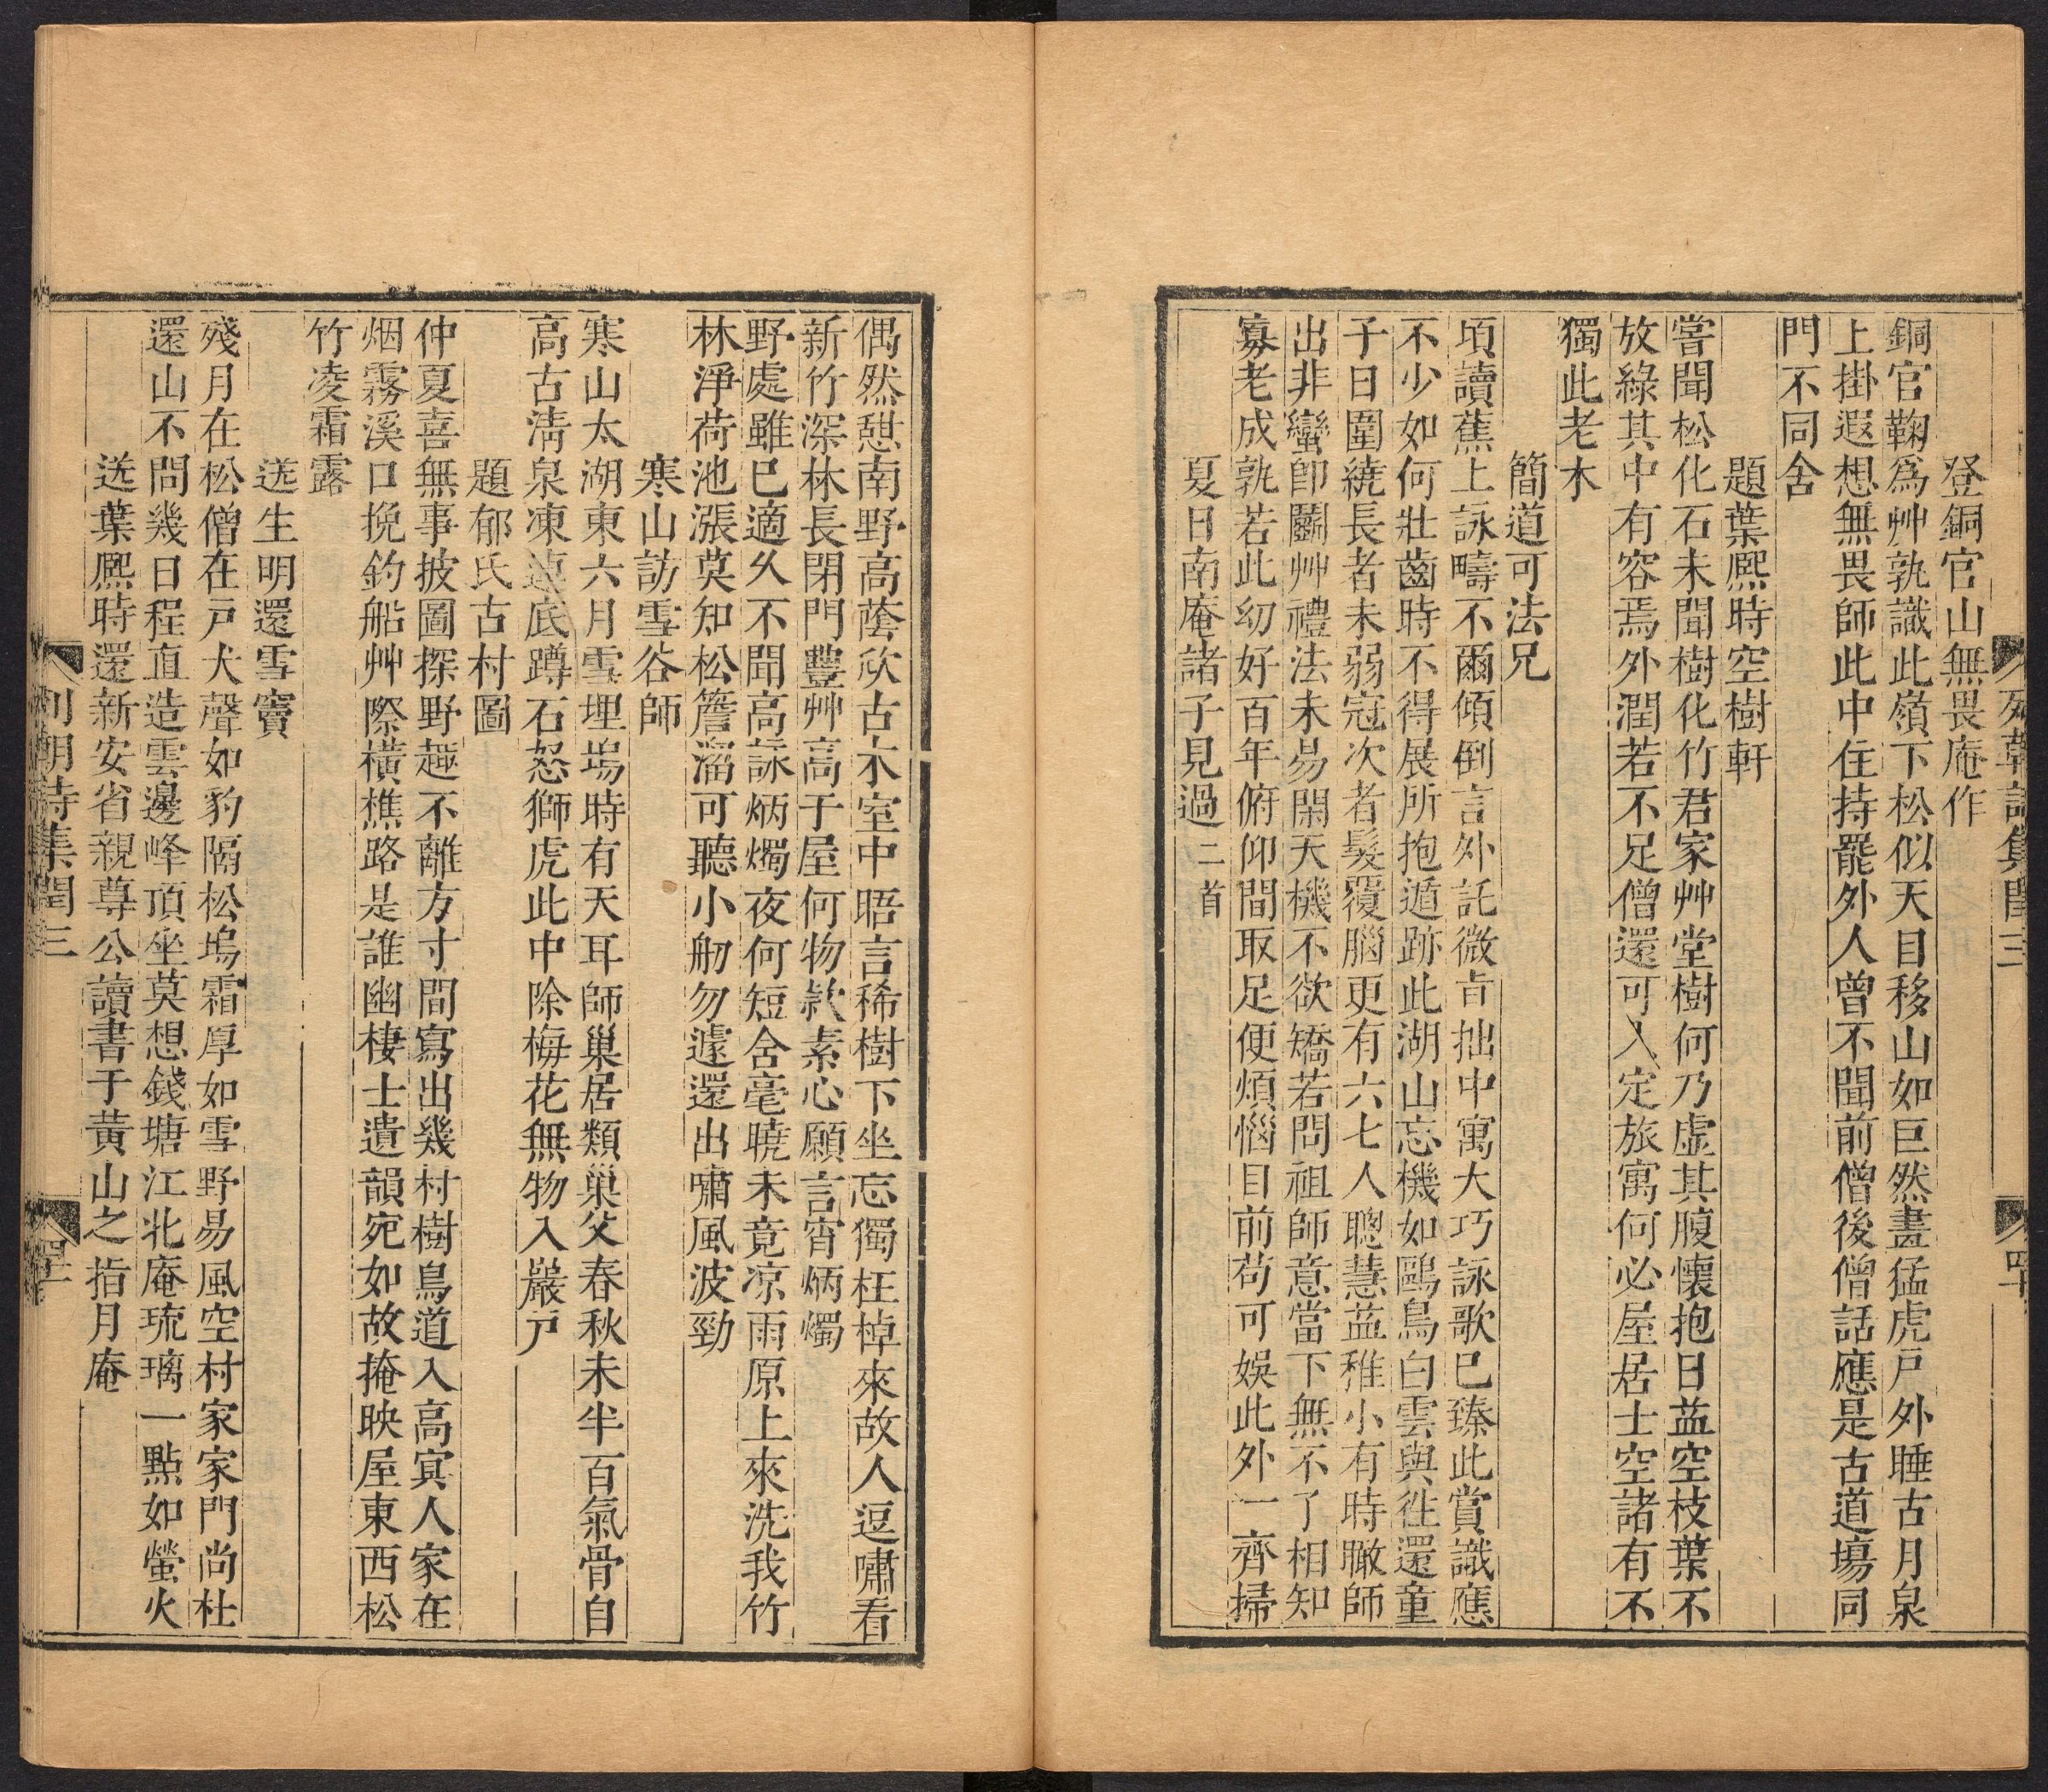 列朝詩集閏三
四十
登銅官山無畏庵作
銅官鞠爲艸孰識此嶺下松似天目移山如巨然畫猛虎戸外睡古月泉
上掛遐想無畏師此中住持罷外人曾不聞前僧後僧話應是古道塲同
門不同舍
題葉熈時空樹軒
嘗聞松化石未聞樹化竹君家艸堂樹何乃虛其腹懷抱日益空枝葉不
放綠其中有容焉外潤若不足僧還可入定旅寓何必屋居士空諸有不
獨此老木
簡道可法兄
項讀蕉上詠疇不爾傾倒言外託微㫖拙中寓大巧詠歌巳臻此賞識應
不少如何壯齒時不得展所抱遁跡此湖山忘機如鷗鳥白雲與徃還童
子日圍繞長者未弱冠次者髮覆腦更有六七人聰慧益稚小有時瞰師
出非蠻卽鬭艸禮法未易閑天機不欲矯若問祖師意當下無不了相知
寡老成孰若此幼好百年俯仰間取足便煩惱目前苟可娛此外一齊掃
夏日南庵諸子見過二首
偶然憇南野高蔭欣古木室中晤言稀樹下坐忘獨枉棹來故人逗嘯看
新竹深林長閉門豐艸高于屋何物款素心願言宵炳燭
野處雖巳適乆不聞高詠炳燭夜何短含毫曉未竟凉雨原上來洗我竹
林淨荷池漲莫知松簷溜可聽小舠勿遽還出嘯風波勁
寒山訪雪谷師
寒山太湖東六月雪埋塢時有天耳師巢居類巢父春秋未半百氣骨自
高古淸泉凍連底蹲石怒獅虎此中除梅花無物入巖戸
題郁氏古村圖
仲夏喜無事披圖探野趣不離方寸間寫出幾村樹鳥道入高㝠人家在
烟霧溪口挽釣船艸際橫樵路是誰幽棲士遺韻宛如故掩映屋東西松
竹凌霜露
送生明還雪竇
殘月在松僧在戸犬聲如豹隔松塢霜厚如雪野易風空村家家門尚杜
還山不問幾日程直造雲邊峰頂坐莫想錢塘江北庵琉璃一點如螢火
送葉熈時還新安省親尊公讀書于黃山之指月庵
列朝詩集閏三